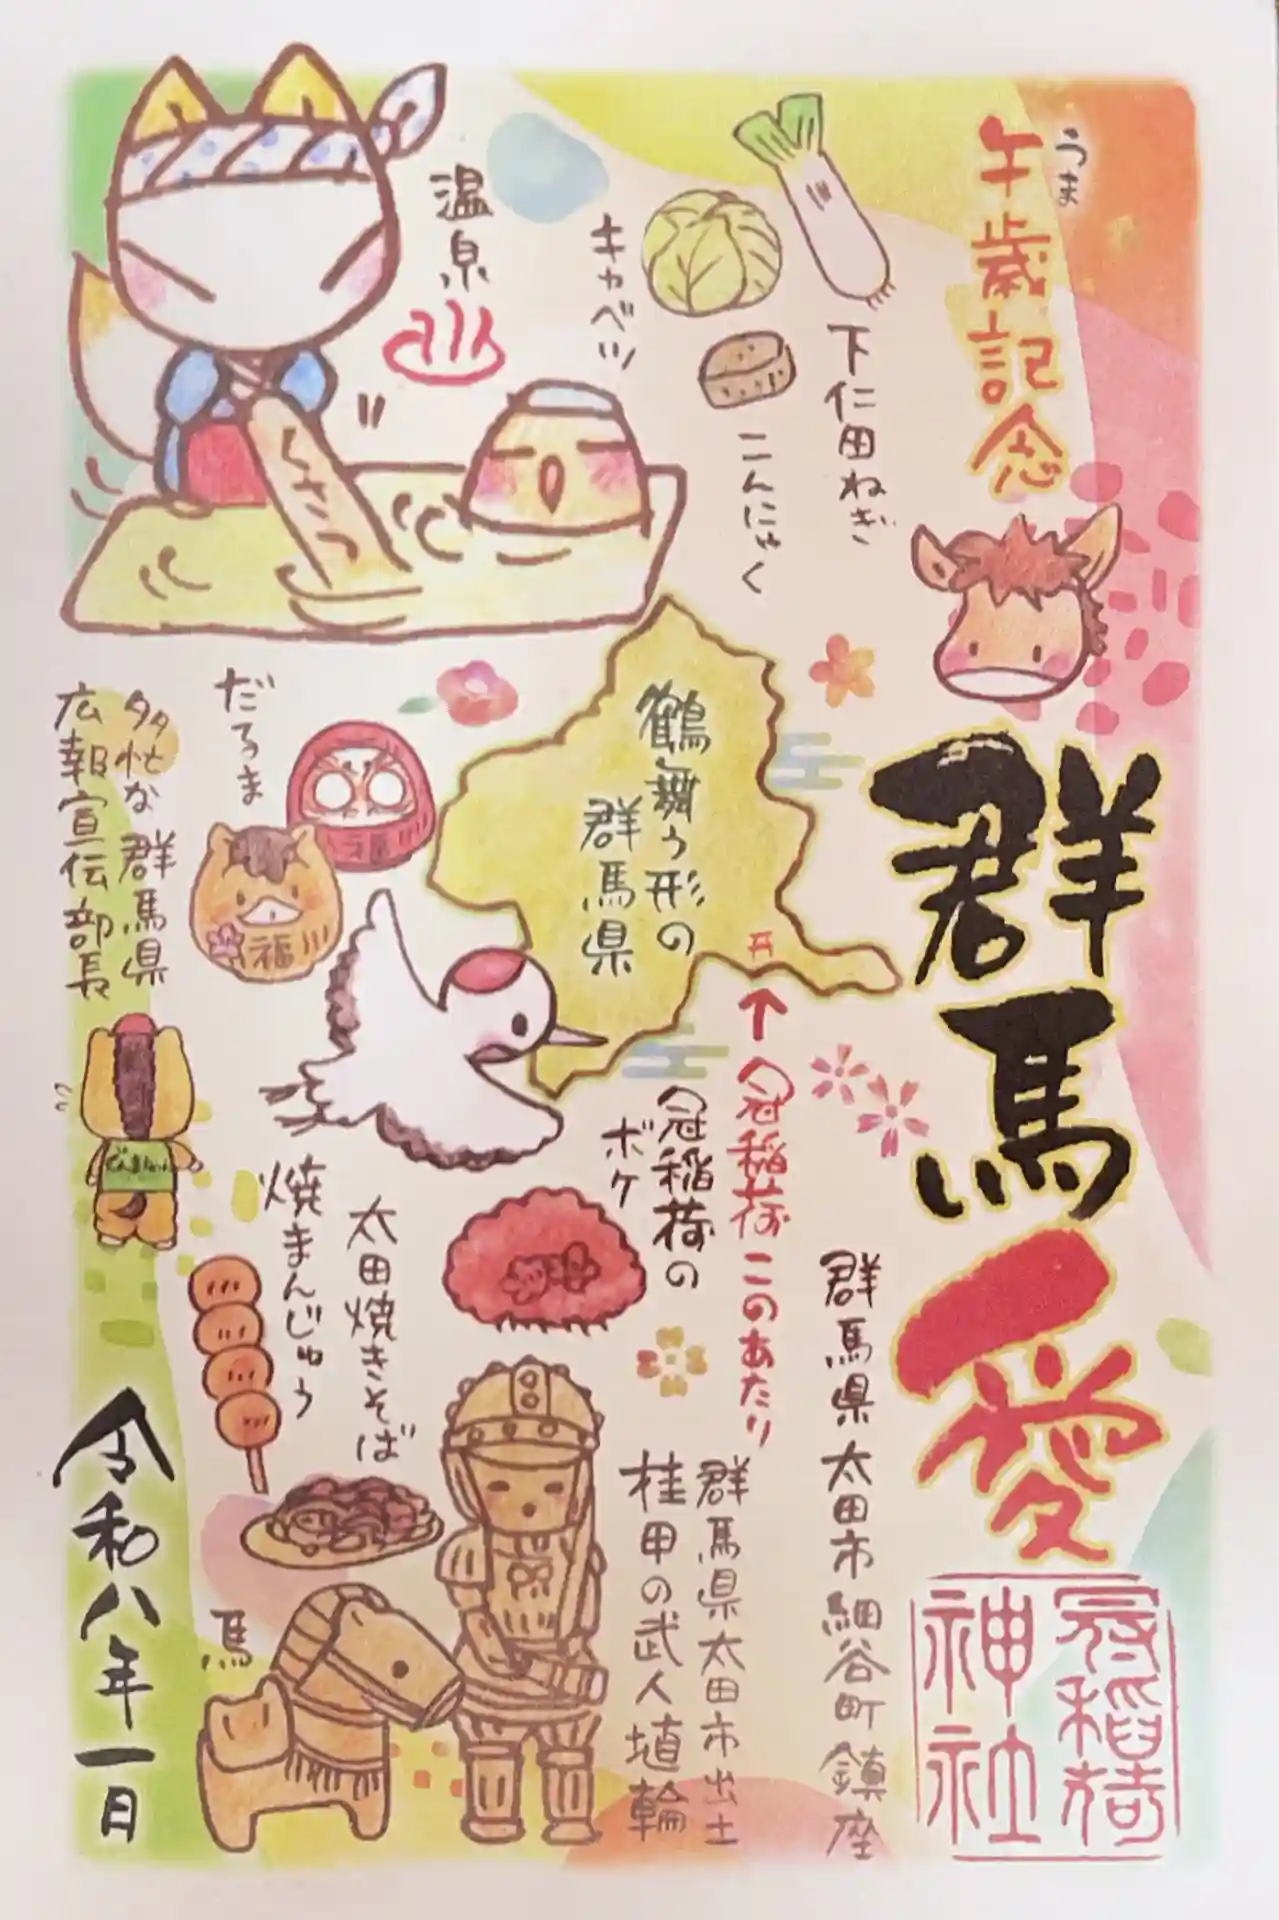 うま
午歳記念
群馬愛
冠稲荷
神社
下仁田ねぎ
キャベツ
こんにゃく
温泉
くさつ
鶴舞う形の
群馬県
冠稲荷このあたり
冠稲荷の
ボケ
群馬県太田市細谷町鎮座
群馬県太田市出土
桂甲の武人埴輪
だるま
福
福
多忙な群馬県
広報宣伝部長
太田焼きそば
焼まんじゅう
馬
令和八年一月